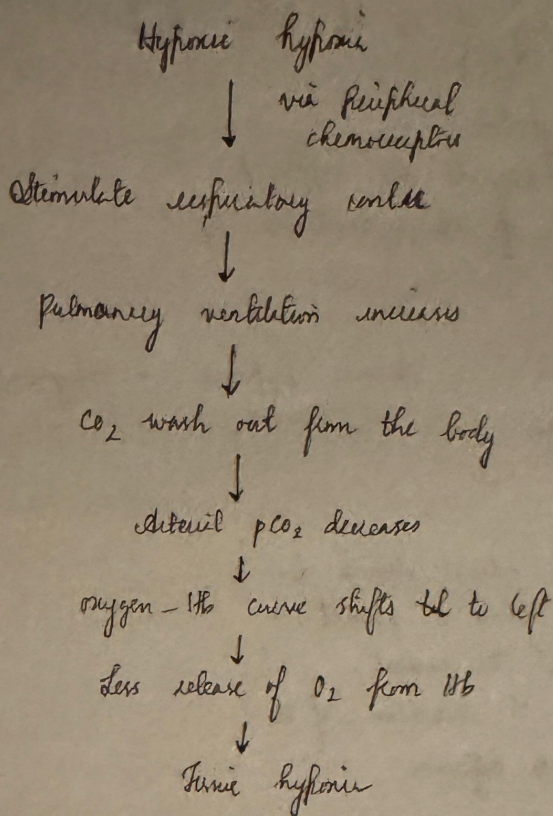 Hypoxic hypoxia
via Peripheral
chemoreceptors
Stimulate respiratory centre
Pulmonary ventilation increases
CO₂ wash out from the body
Arterial pCO₂ decreases
oxygen - Hb curve shifts to left
Less release of O₂ from Hb
Tissue hypoxia